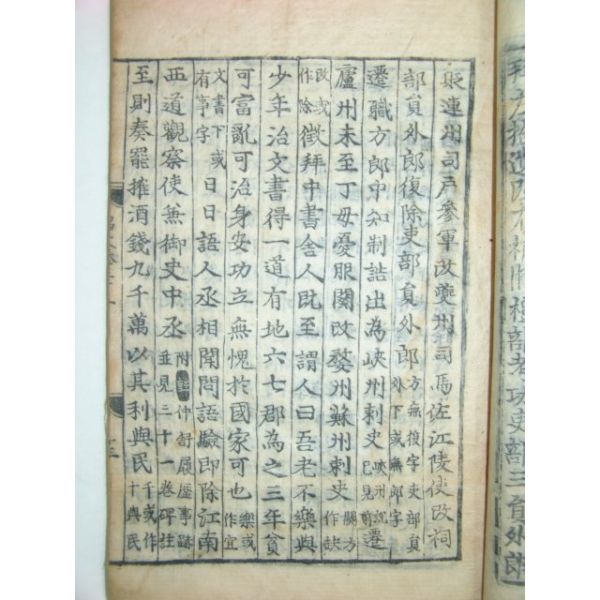 貶連州司戶參軍改夔州司馬佐江陵使改祠
部員外郎復除吏部員外郎方無復字吏部員外下或無郎字
遷職方郎中知制誥出為峽州刺史峽州說已見前遷
廬州未至丁母憂服闋改婺州蘇州刺史闋方作缺
改或作除徵拜中書舍人既至謂人曰吾老不樂與
少年治文書得一道有地六七郡為之三年貧
可富亂可治身安功立無愧於國家可也樂或作宜
文書下或有事字日日語人丞相聞問語驗即除江南
西道觀察使兼御史中丞附註仲舒履歷事跡並見三十一卷碑註
至則奏罷搉酒錢九千萬以其利與民千或作十與民